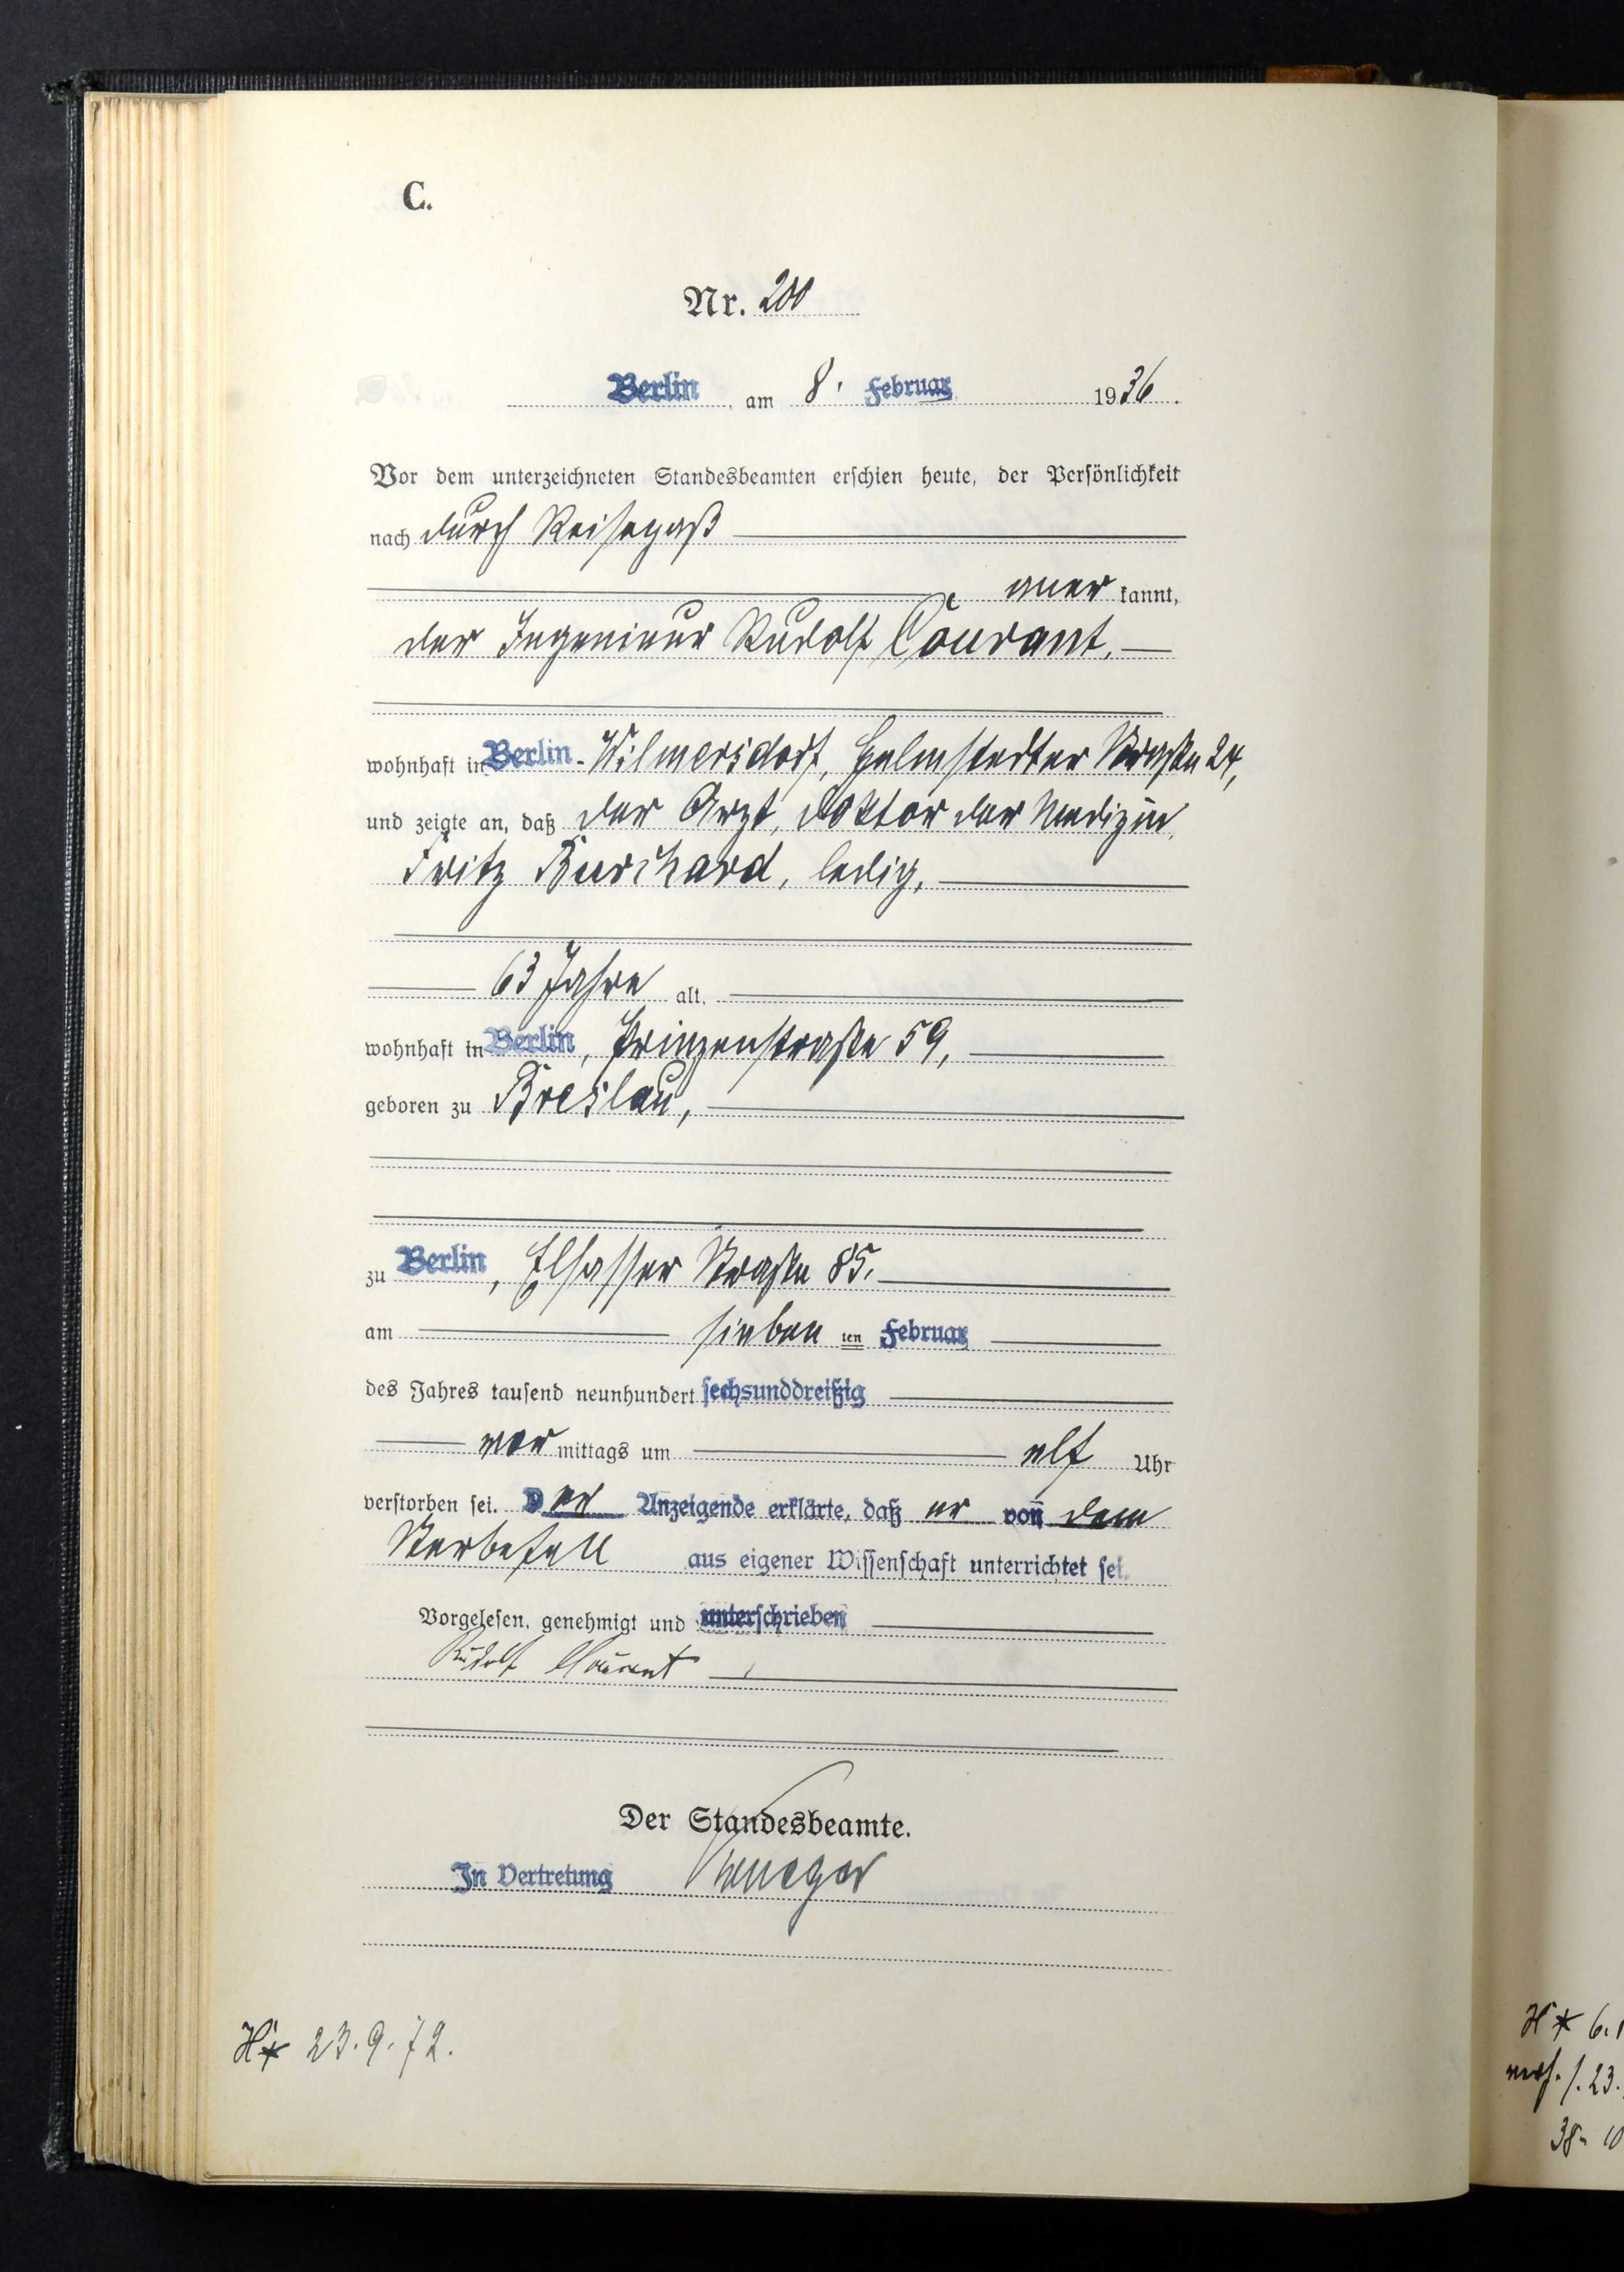 C.
Nr. 200
Berlin, am 8. Februar 1936.
Vor dem unterzeichneten Standesbeamten erschien heute, der Persönlichkeit
nach durch Reisepaß
anerkannt,
der Ingenieur Rudolf Courant,
wohnhaft in Berlin-Wilmersdorf, Helmstedter Straße 24,
und zeigte an, daß der Arzt, Doktor der Medizin,
Fritz Burchard, ledig,
63 Jahre alt,
wohnhaft in Berlin, Prinzenstraße 59,
geboren zu Breslau,
zu Berlin, Elsasser Straße 85,
am sieben ten Februar
des Jahres tausend neunhundert sechsunddreißig
vor mittags um elf Uhr
verstorben sei. Der Anzeigende erklärte, daß er von dem
Sterbefall aus eigener Wissenschaft unterrichtet sei.
Vorgelesen, genehmigt und unterschrieben
Rudolf Courant
Der Standesbeamte.
In Vertretung
H* 23.9.72.
H* 6.
38.